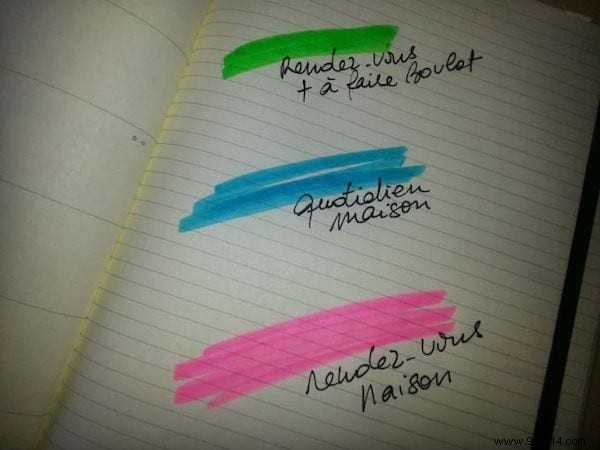 Rendez-vous
+ à faire Boulot
quotidien
maison
rendez-vous
Maison